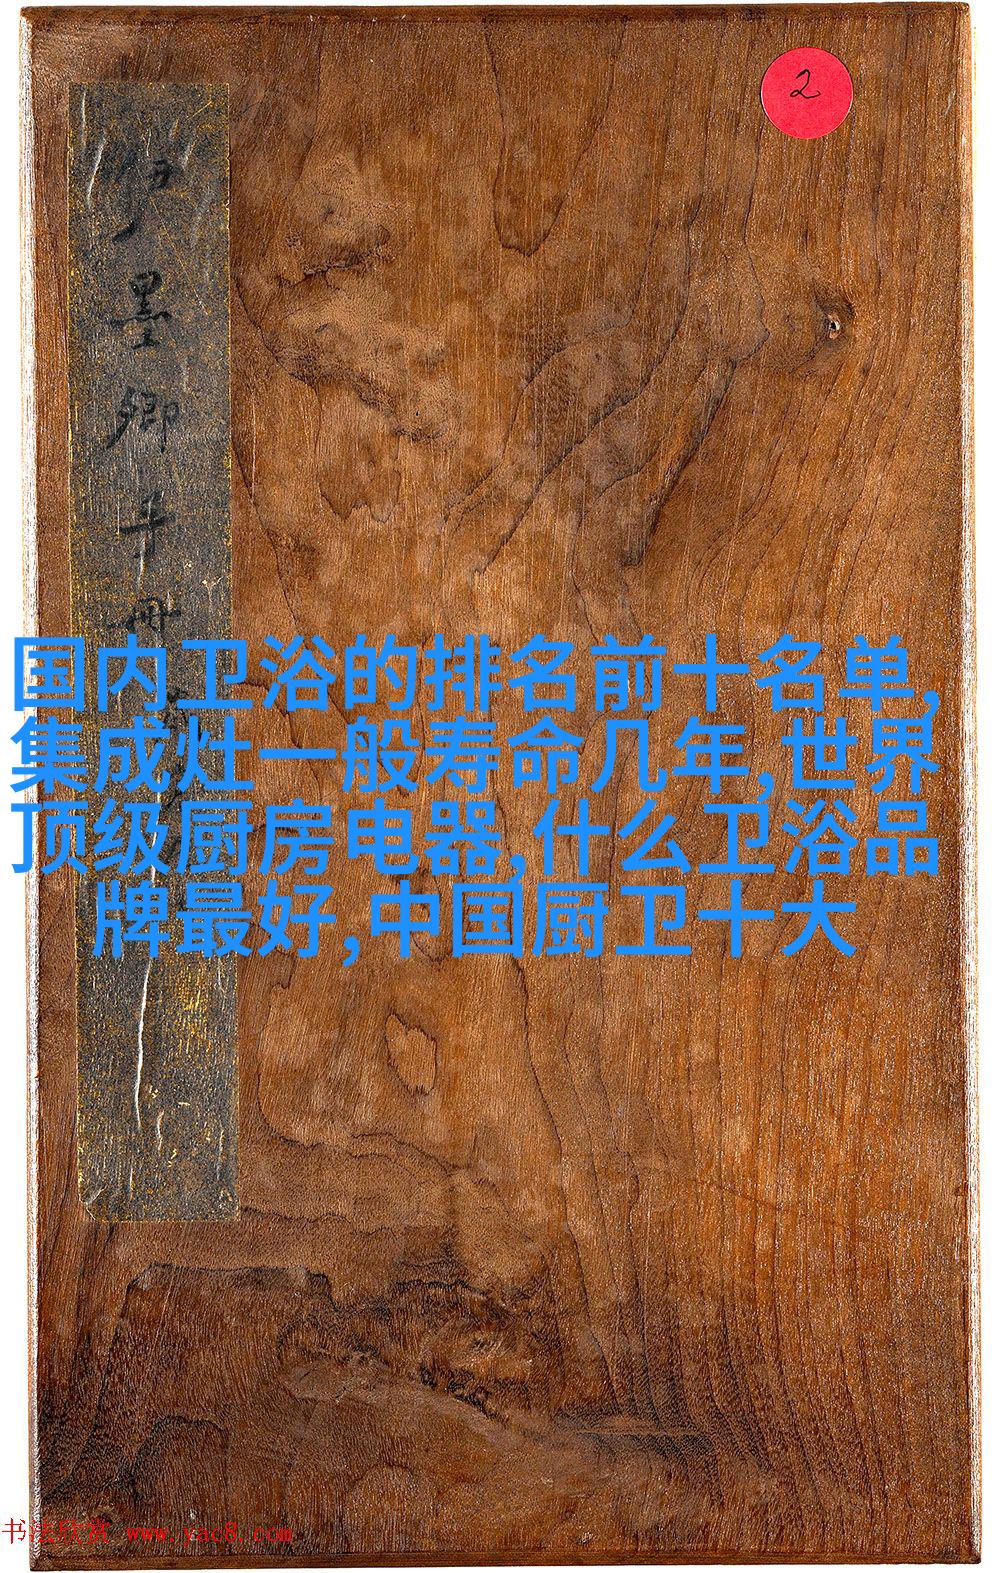 2
墨卿手冊
国内卫浴的排名前十名单,
集成灶一般寿命几年,世界
顶级厨房电器,什么卫浴品
牌最好,中国厨卫十大
书法欣赏 www.yac8.com